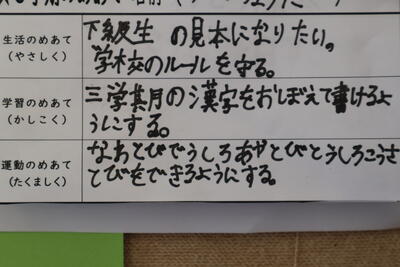 生活のめあて
(やさしく)
下級生の見本になりたい。
学校のルールを守る。
学習のめあて
(かしこく)
三学期の漢字をおぼえて書けるよ
うにする。
運動のめあて
(たくましく)
なわとびでうしろあやとびとうしろこうさ
とびをできるようにする。